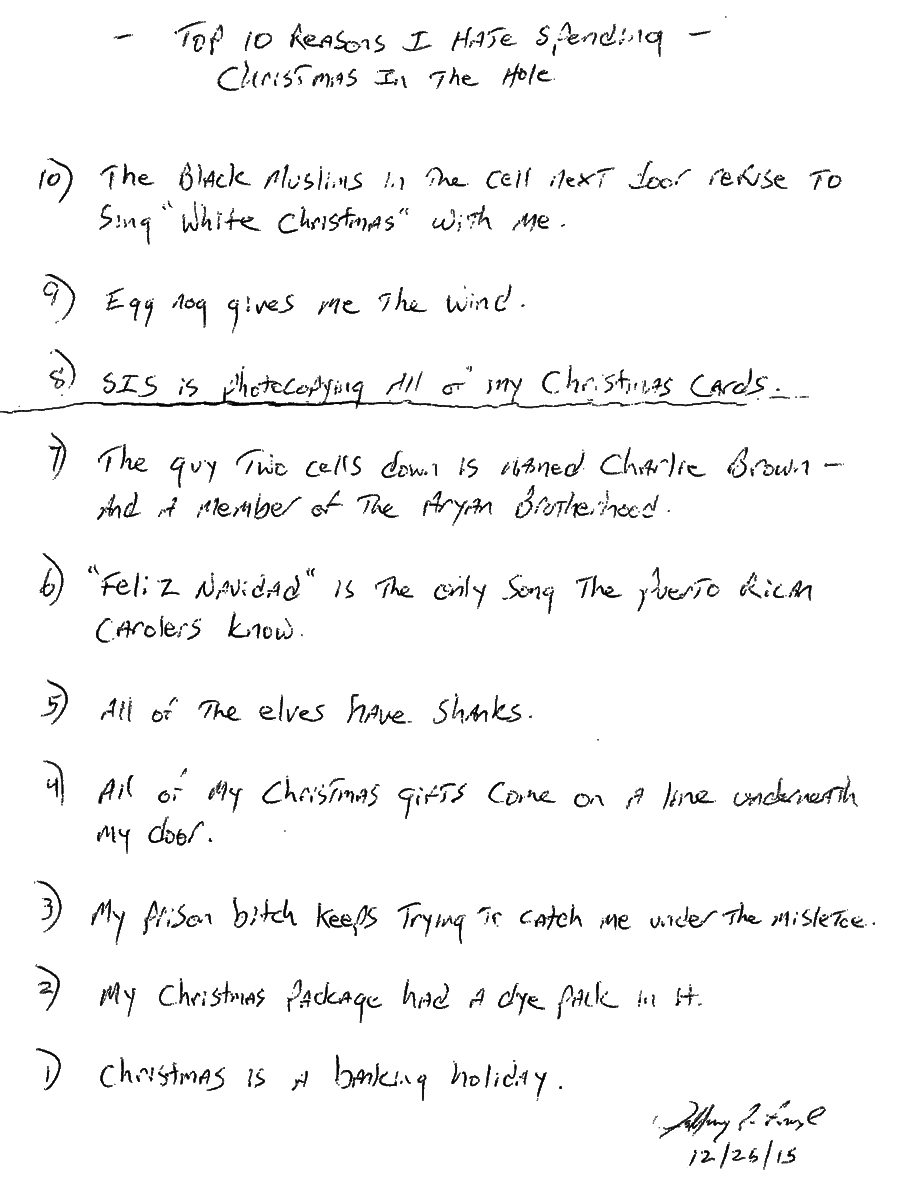 - Top 10 Reasons I Hate Spending -
Christmas In The Hole
10) The Black Muslims in The cell next door refuse To
Sing "White Christmas" with me.
9) Egg nog gives me The wind.
8) SIS is photocopying All of my Christmas Cards.
7) The guy Two cells down is named Charlie Brown -
And A Member of The Aryan Brotherhood.
6) "Feliz Navidad" is The only Song The Puerto Rican
Carolers know.
5) All of The elves have Shanks.
4) All of My Christmas gifts Come on A line underneath
My door.
3) My prison bitch keeps Trying To catch me under The misletoe.
2) My Christmas Package had A dye pack in it.
1) Christmas is A banking holiday.
12/25/15